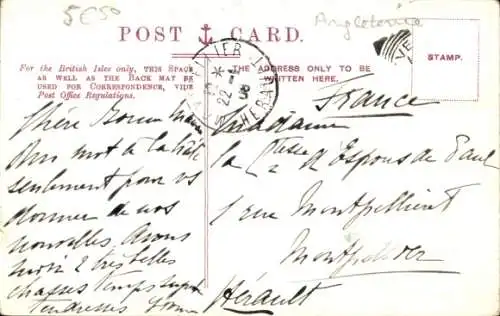 5€50
Angleterre
POST CARD.
For the British Isles only, THIS SPACE
AS WELL AS THE BACK MAY BE
USED FOR CORRESPONDENCE, VIDE
Post Office Regulations.
THE ADDRESS ONLY TO BE
WRITTEN HERE.
STAMP.
MONTPELLIER
22 -4
08
HERAULT
France
Chère Bonne Maman
Un mot à la hâte
seulement pour vs
donner de nos
nouvelles. Avons
suivi 2 très belles
chasses temps superbe
Tendresses
Madame
la Ctesse d'Espous de Paul
1 rue Montpellieret
Montpellier
Hérault